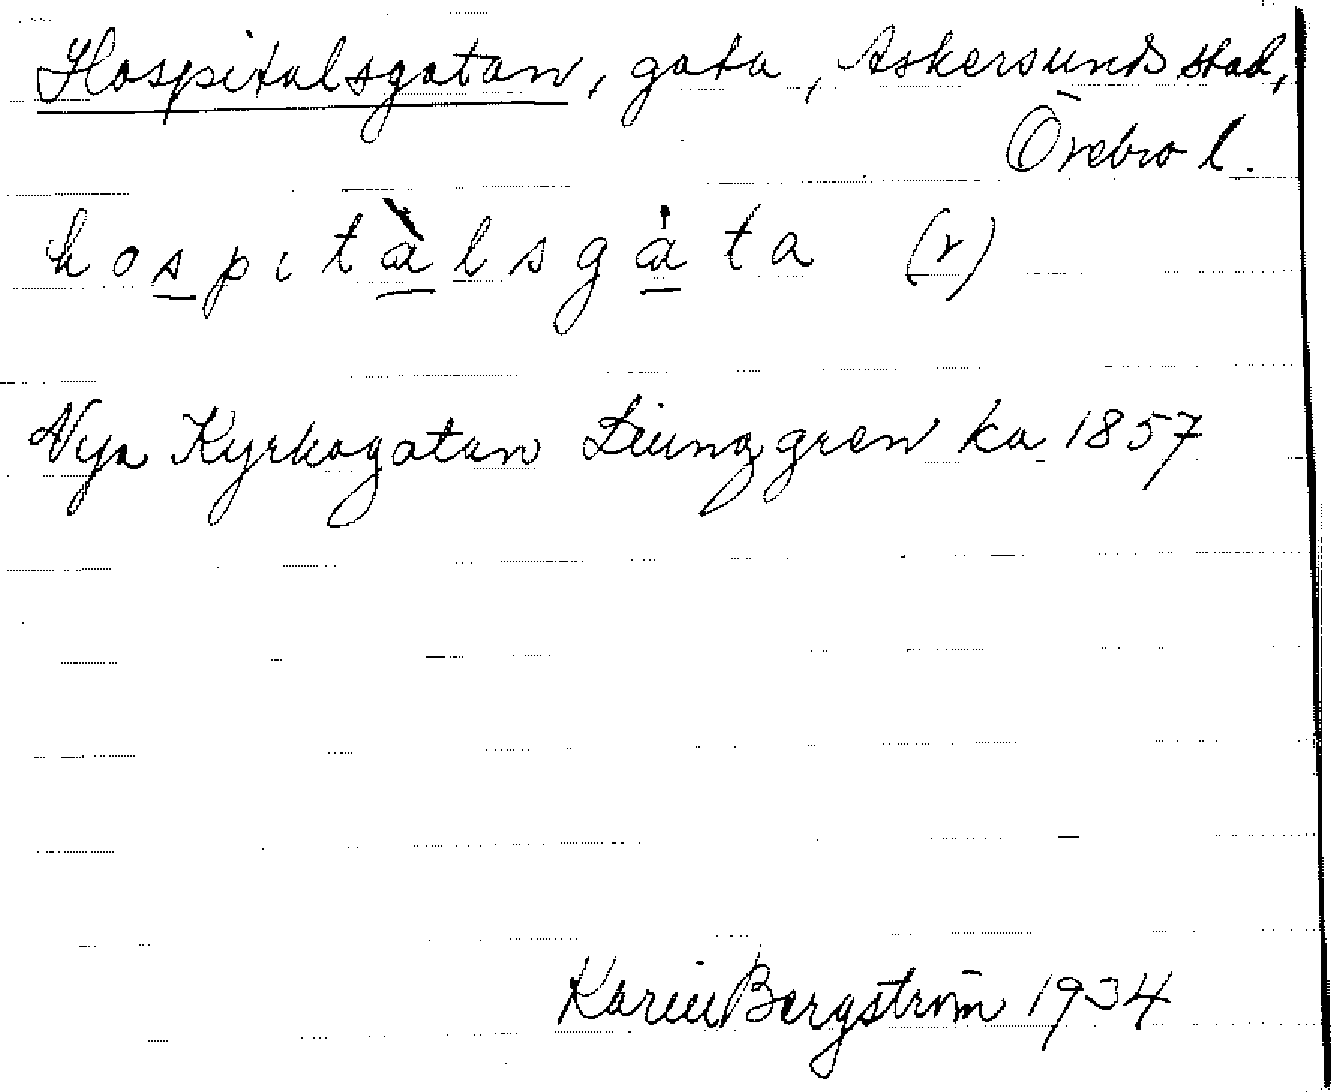 Hospitalsgatan, gata, Askersunds stad,
Örebro l.
hospitàlsgȧta (r)
Nya Kyrkogatan Ljunggren ka 1857
Karin Bergström 1934